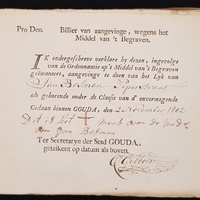 Pro Deo. Billiet van aangevinge, wegens het
Middel van 't Begraven.
IK ondergeschreve verklare by dezen, ingevolge
van de Ordonnantie op 't Middel van 't Begraven
geëmaneert, aangevinge te doen van het Lyk van
Jan Bosman Peperstraat
als gehoorende onder de Classis van d' onvermogende
Gedaan binnen GOUDA, den 2 November 1802
Dit is het + merk van de
van Jan Bosman
Ter Secretarye der Stad GOUDA,
geteikent op datum als boven.